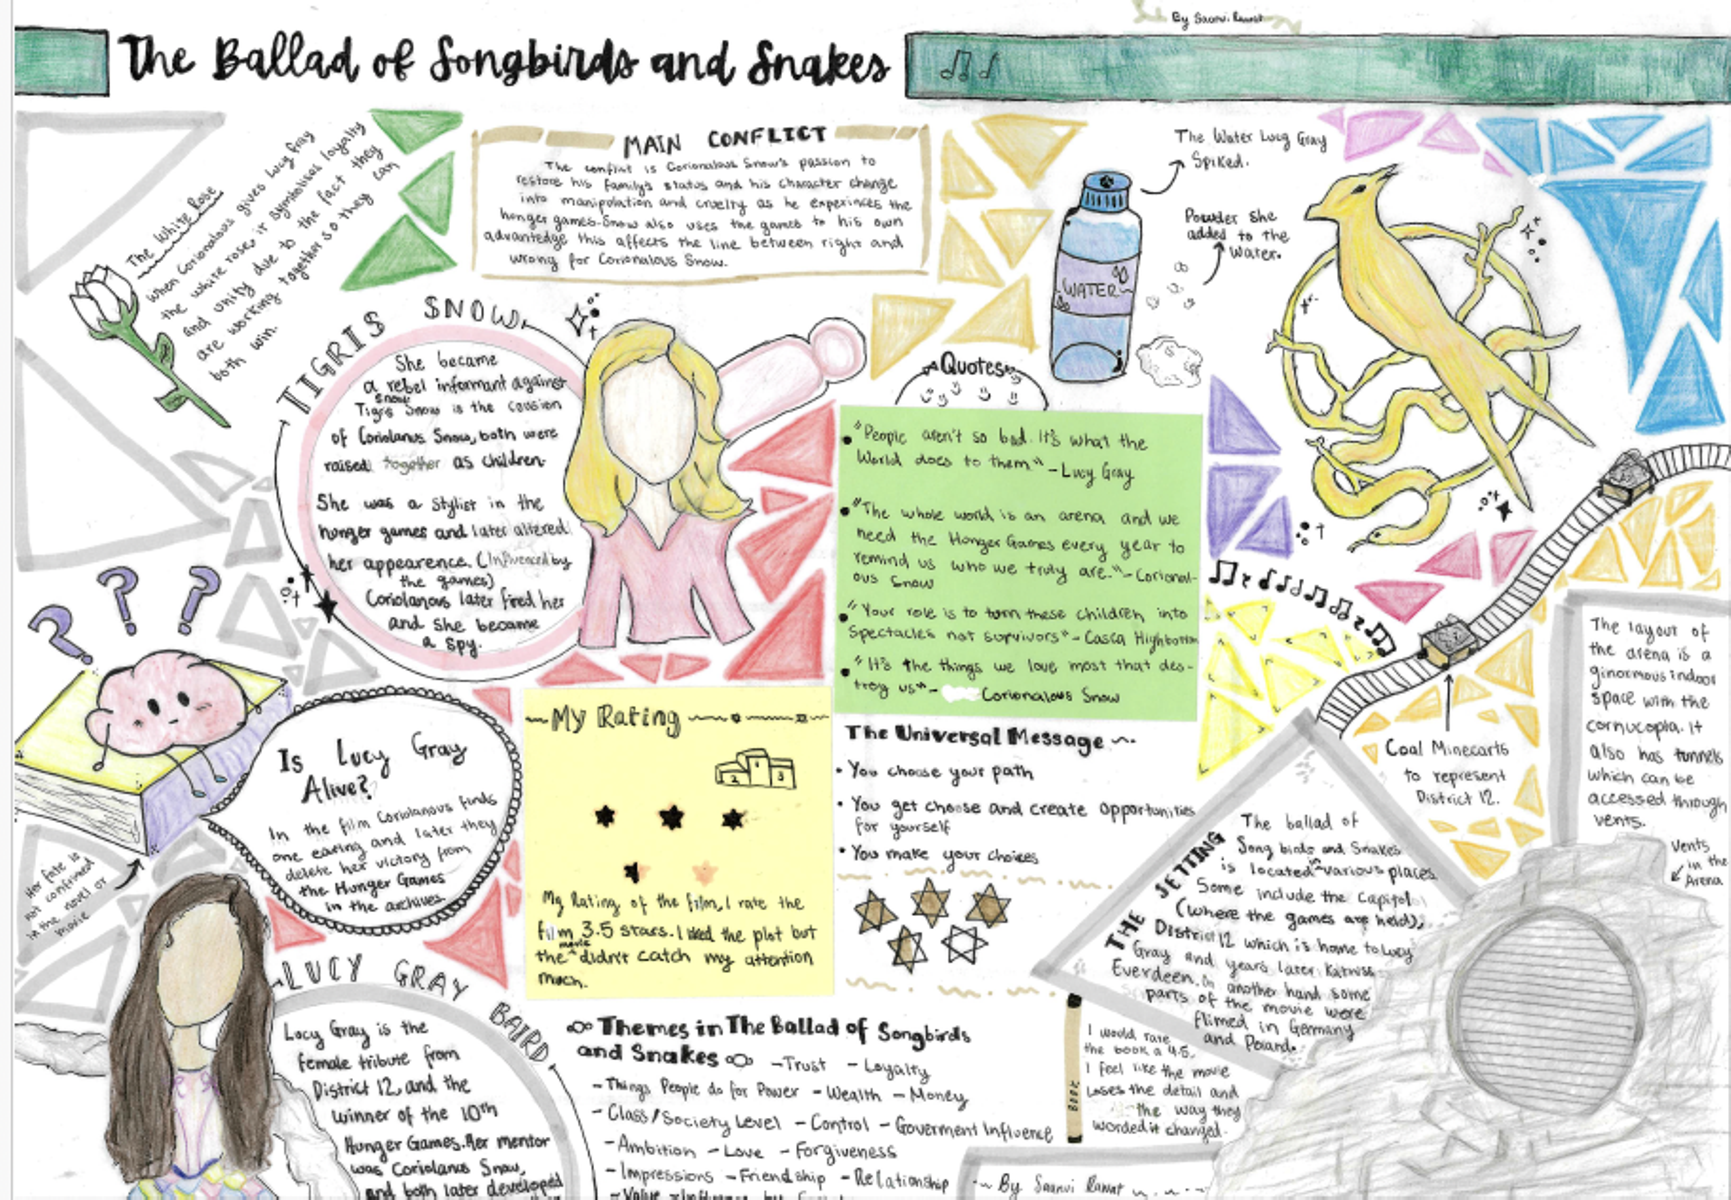 By Saanvi Rawat
The Ballad of Songbirds and Snakes
The White Rose
when Coriolanous gives Lucy Gray
the white rose, it symbolises loyalty
and unity due to the fact they
are working together so they can
both win.
MAIN CONFLICT
The conflict is Corionalous Snow's passion to
restore his family's status and his character change
into manipulation and cruelty as he experinces the
honger games. Snow also uses the games to his own
advantedge this affects the line between right and
wrong for Corionalous Snow.
The Water Lucy Gray
Spiked.
Powder she
added to the
Water.
WATER
TIGRIS SNOW
She became
a rebel informant against
snow
Tigris Snow is the cousion
of Coriolanus Snow, both were
raised together as children.
She was a stylist in the
honger games and later altered
her appearence. (Influenced by
the games)
Coriolanous later fired her
and she became
a spy.
Quotes
"People aren't so bad. It's what the
World does to them" - Lucy Gray
"The whole world is an arena and we
need the Honger Games every year to
remind us who we truly are." - Corional-
ous Snow
"Your role is to torn these children into
Spectacles not survivors" - Casca Highbottom
"It's the things we love most that des-
troy us" - Corionalous Snow
? ? ?
Is Lucy Gray
Alive?
In the film Coriolanous finds
one earing and later they
delete her victory from
the Hunger Games
in the archives.
Her fate is
not confirmed
in the novel or
movie
My Rating
2 1 3
My Rating of the film, I rate the
film 3.5 stars. I liked the plot but
the movie didn't catch my attention
much.
The Universal Message
• You choose your path
• You get choose and create opportunities
for yourself
• You make your choices
Coal Minecarts
to represent
District 12.
The layout of
the arena is a
ginormous indoor
space with the
cornucopia. It
also has tunnels
which can be
accessed through
vents.
Vents
in the
Arena
THE SETTING
The ballad of
Song birds and Snakes
is located in various places.
Some include the Capitol
(where the games are held),
District 12 which is home to Lucy
Gray and years later Katniss
Everdeen. On another hand some
parts of the movie were
flimed in Germany
and Poland.
BOOK
I would rate
the book a 4.5.
I feel like the movie
loses the detail and
the way they
worded it changed.
LUCY GRAY BAIRD
Lucy Gray is the
female tribute from
District 12, and the
winner of the 10th
Hunger Games. Her mentor
was Coriolanus Snow,
and both later developed
Themes in The Ballad of Songbirds
and Snakes - Trust - Loyalty
- Things People do for Power - Wealth - Money
- Class/Society Level - Control - Goverment Influence
- Ambition - Love - Forgiveness
- Impressions - Friendship - Relationship
- Value
By Saanvi Rawat